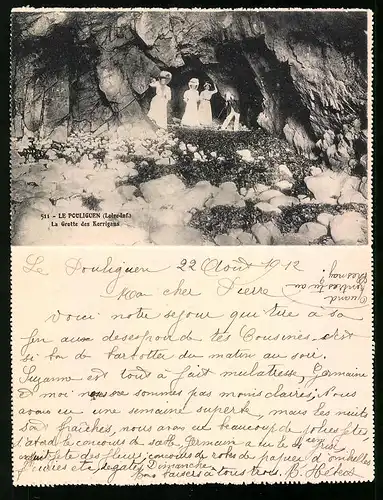 511 - LE POULIGUEN (Loire-Inf.)
La Grotte des Korrigans
Le Pouliguen 22 Août 1912
Quand
rentres-tu au
Mon cher Pierre
Voici notre séjour qui tire à sa
fin au desespoir de tes Cousines, c'est
si bon de barbotter du matin au soir.
Suzanne est tout à fait mulatresse, Germaine
et moi nous ne sommes pas moins claires; Nous
avons eu une semaine superbe, mais les nuits
sont fraîches, nous avons eu beaucoup de jolies fêtes,
le concours de sable Germaine a eu le 4eme prix
fête des fleurs, concours de robes de papier, d'ombrelles
fleuries etc, regates Dimanche,
bons baisers à tous trois. B.